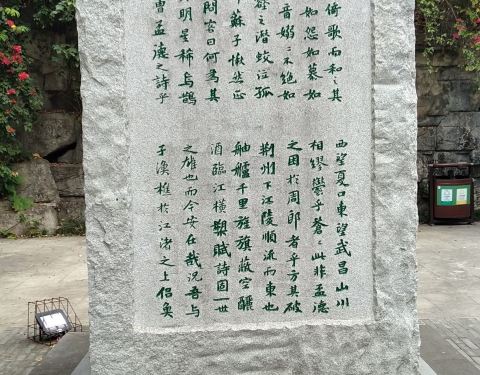 倚歌而和其
如怨如慕如
音嫋〻不絕如
壑之潛蛟泣孤
蘇子愀然正
問客曰何為其
月明星稀烏鵲
曹孟德之詩乎
西望夏口東望武昌山川
相繆鬱乎蒼〻此非孟德
之困於周郎者乎方其破
荊州下江陵順流而東也
舳艫千里旌旗蔽空釃
酒臨江橫槊賦詩固一世
之雄也而今安在哉況吾與
子漁樵於江渚之上侶魚